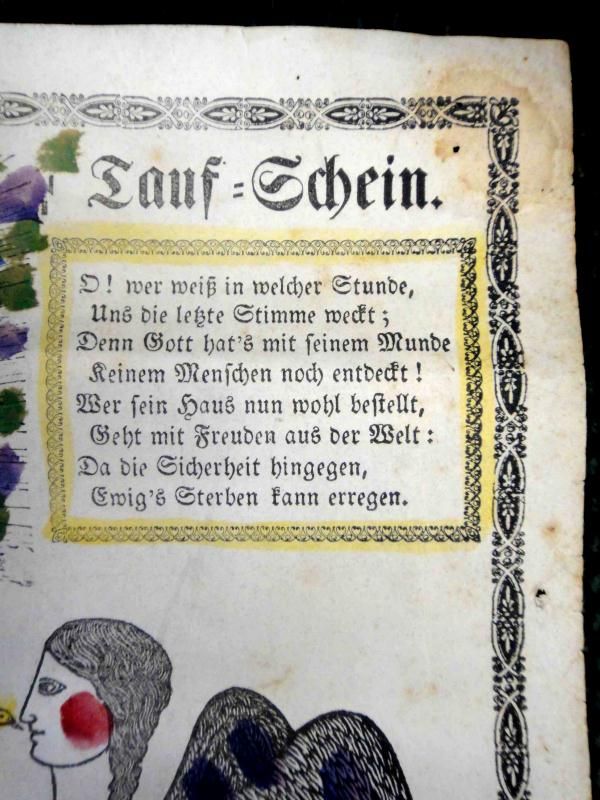 Tauf-Schein.
O! wer weiß in welcher Stunde,
Uns die letzte Stimme weckt;
Denn Gott hat's mit seinem Munde
Keinem Menschen noch entdeckt!
Wer sein Haus nun wohl bestellt,
Geht mit Freuden aus der Welt:
Da die Sicherheit hingegen,
Ewig's Sterben kann erregen.